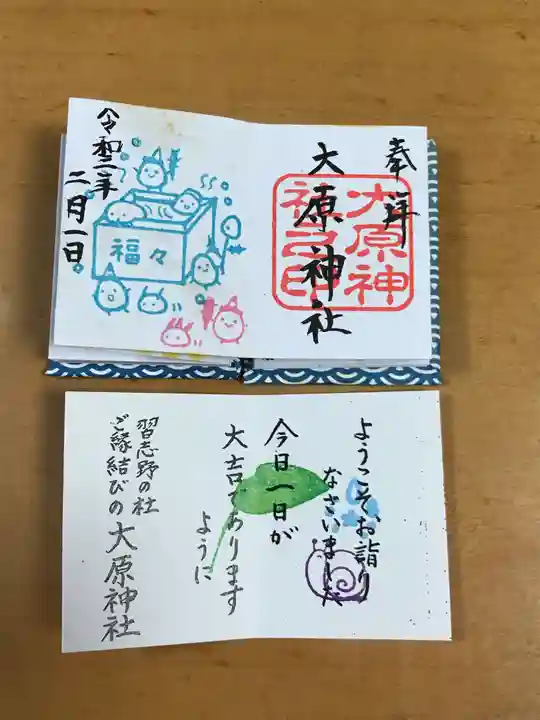 奉拝
大原神社
大原神
社之印
令和二年
二月一日
福々
ようこそ、お詣り
なさいました
今日一日が
大吉であります
ように
習志野の社
ご縁結びの大原神社